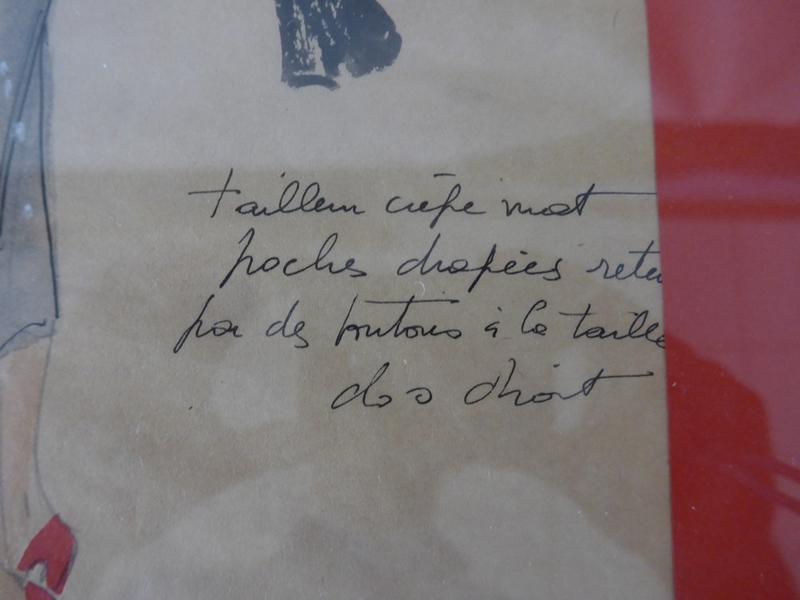 tailleur crêpe mat
poches drapées rete
par des boutons à la taille
dos droit